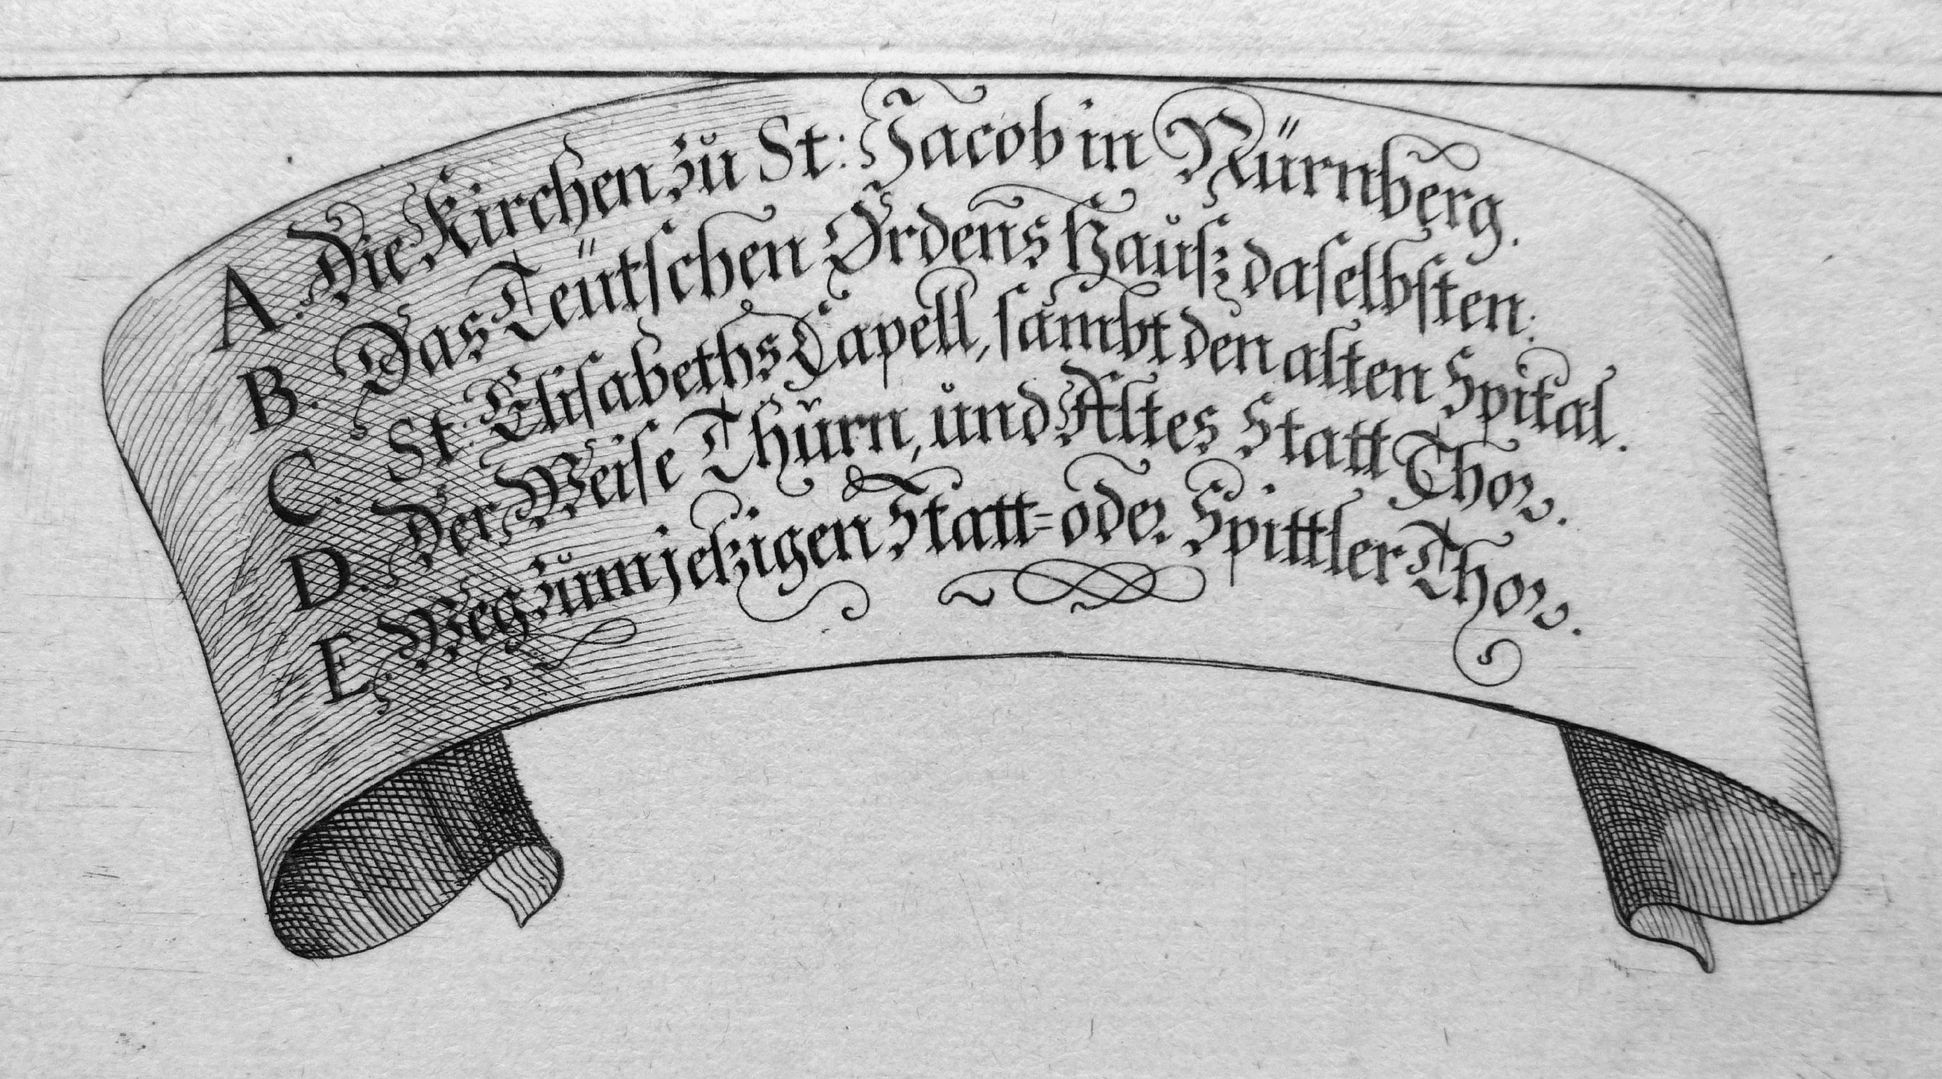 A. Die Kirchen zů St: Jacob in Nürnberg.
B. Das Teütschen Ordens Haůß daselbsten.
C. St: Elisabeths Capell, sambt den alten Spital.
D. Der Weise Thůrn, ůnd Altes Statt Thor.
E. Weg zům jetzigen Statt= oder Spittler Thor.